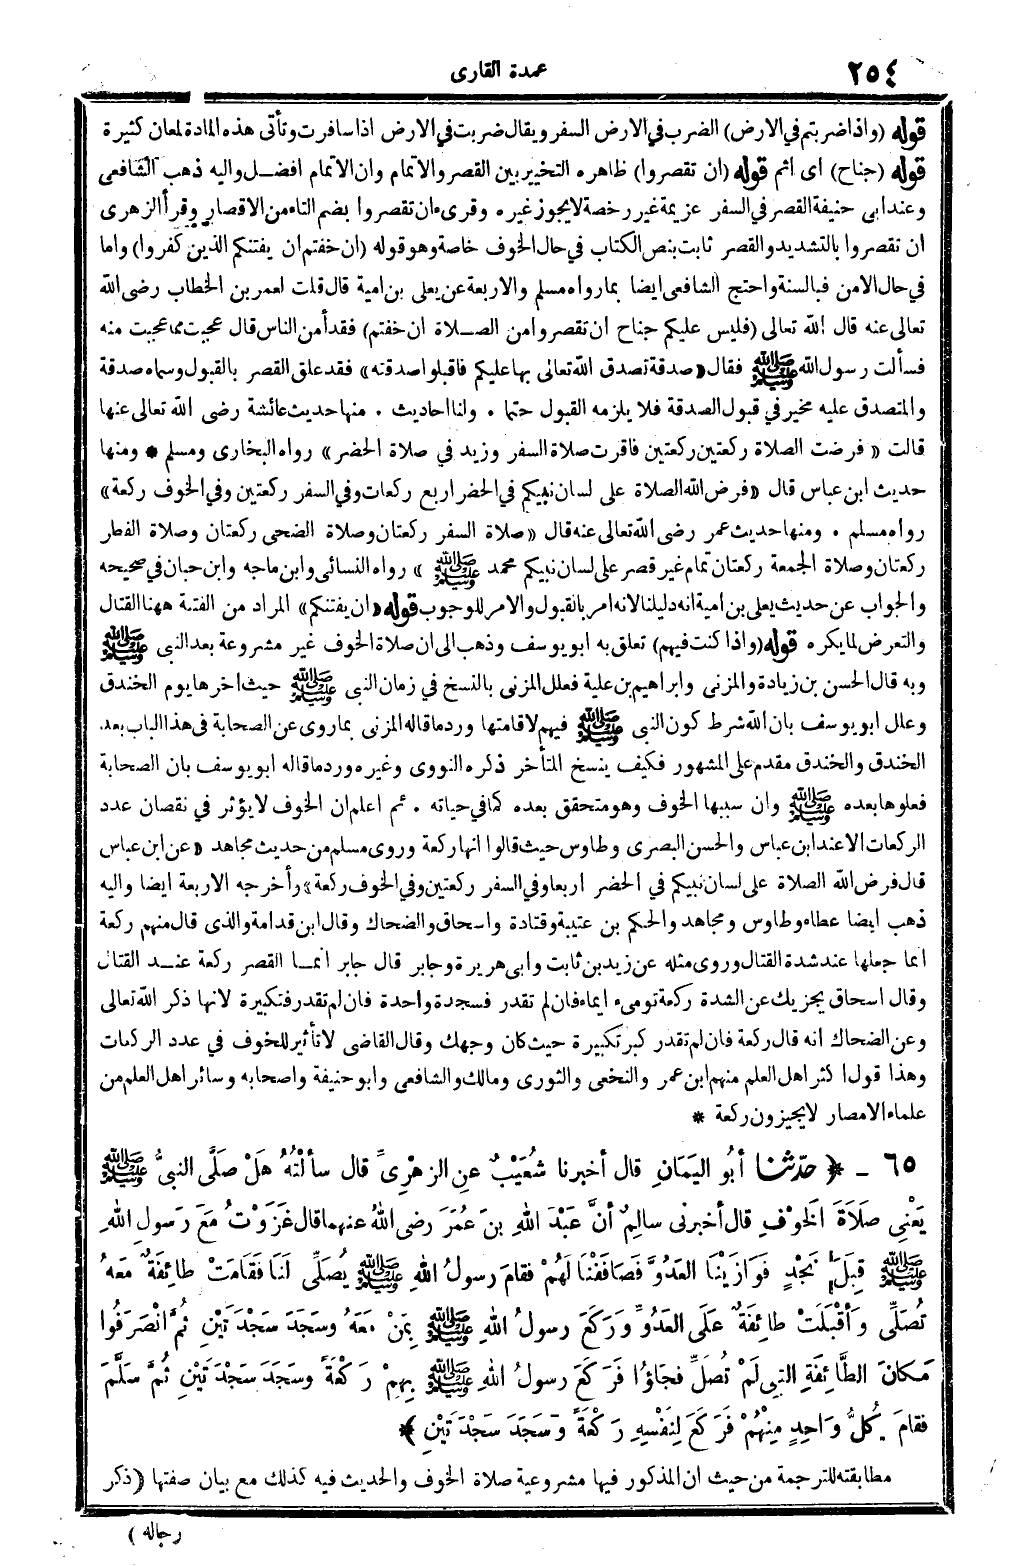 ٢٥٤
عمدة القارى
قوله (واذا ضربتم في الارض) الضرب في الارض السفر ويقال ضربت في الارض اذا سافرت وتأتى هذه المادة لمعان كثيرة
قوله (جناح) اى اثم قوله (ان تقصروا) ظاهره التخيير بين القصر والاتمام وان الاتمام افضل واليه ذهب الشافعى
وعند ابى حنيفة القصر في السفر عزيمة غير رخصة لا يجوز غيره وقرىء ان تقصروا بضم التاء من الاقصار وقرأ الزهرى
ان تقصروا بالتشديد والقصر ثابت بنص الكتاب في حال الخوف خاصة وهو قوله (ان خفتم ان يفتنكم الذين كفروا) واما
في حال الامن فبالسنة واحتج الشافعى ايضا بما رواه مسلم والاربعة عن يعلى بن امية قال قلت لعمر بن الخطاب رضى الله
تعالى عنه قال الله تعالى (فليس عليكم جناح ان تقصروا من الصلاة ان خفتم) فقد أمن الناس قال عجبت مما عجبت منه
فسألت رسول الله ﷺ فقال «صدقة تصدق الله تعالى بها عليكم فاقبلوا صدقته» فقد علق القصر بالقبول وسماه صدقة
والمتصدق عليه مخير في قبول الصدقة فلا يلزمه القبول حتما . ولنا احاديث . منها حديث عائشة رضى الله تعالى عنها
قالت « فرضت الصلاة ركعتين ركعتين فاقرت صلاة السفر وزيد في صلاة الحضر» رواه البخارى ومسلم * ومنها
حديث ابن عباس قال «فرض الله الصلاة على لسان نبيكم في الحضر اربع ركعات وفي السفر ركعتين وفي الخوف ركعة»
رواه مسلم . ومنها حديث عمر رضى الله تعالى عنه قال «صلاة السفر ركعتان وصلاة الضحى ركعتان وصلاة الفطر
ركعتان وصلاة الجمعة ركعتان تمام غير قصر على لسان نبيكم محمد ﷺ» رواه النسائى وابن ماجه وابن حبان في صحيحه
والجواب عن حديث يعلى بن امية انه دليلنا لانه امر بالقبول والامر للوجوب قوله «ان يفتنكم» المراد من الفتنة ههنا القتال
والتعرض لما يكره قوله (واذا كنت فيهم) تعلق به ابو يوسف وذهب الى ان صلاة الخوف غير مشروعة بعد النبى ﷺ
وبه قال الحسن بن زيادة والمزنى وابراهيم بن علية فعلل المزنى بالنسخ في زمان النبى ﷺ حيث اخرها يوم الخندق
وعلل ابو يوسف بان الله شرط كون النبى ﷺ فيهم لاقامتها ورد ما قاله المزنى بما روى عن الصحابة فى هذا الباب بعد
الخندق والخندق مقدم على المشهور فكيف ينسخ المتأخر ذكره النووى وغيره ورد ما قاله ابو يوسف بان الصحابة
فعلوها بعده ﷺ وان سببها الخوف وهو متحقق بعده كما في حياته . ثم اعلم ان الخوف لا يؤثر في نقصان عدد
الركعات الا عند ابن عباس والحسن البصرى وطاوس حيث قالوا انها ركعة وروى مسلم من حديث مجاهد «عن ابن عباس
قال فرض الله الصلاة على لسان نبيكم في الحضر اربعا وفي السفر ركعتين وفي الخوف ركعة» رأخرجه الاربعة ايضا واليه
ذهب ايضا عطاء وطاوس ومجاهد والحكم بن عتيبة وقتادة واسحاق والضحاك وقال ابن قدامة والذى قال منهم ركعة
انما جعلها عند شدة القتال وروى مثله عن زيد بن ثابت وأبى هريرة وجابر قال جابر انما القصر ركعة عند القتال
وقال اسحاق يجزيك عن الشدة ركعة تومىء ايماء فان لم تقدر فسجدة واحدة فان لم تقدر فتكبيرة لانها ذكر الله تعالى
وعن الضحاك انه قال ركعة فان لم تقدر كبر تكبيرة حيث كان وجهك وقال القاضى لا تأثير للخوف في عدد الركعات
وهذا قول اكثر اهل العلم منهم ابن عمر والنخعى والثورى ومالك والشافعى وابو حنيفة واصحابه وسائر اهل العلم من
علماء الامصار لا يجيزون ركعة *
٦٥ - ﴿ حدثنا أبُو اليَمَانِ قال أخبرنا شُعَيْبٌ عنِ الزهْرِىِّ قال سألْتُهُ هَلْ صَلَّى النبىُّ ﷺ
يَعْنِى صَلاَةَ الخَوْفِ قال أخبرنى سالِمٌ أنَّ عَبْدَ اللهِ بنَ عُمَرَ رضى اللهُ عنهما قال غَزَوْتُ مَعَ رَسولِ اللهِ
ﷺ قِبَلَ نَجْدٍ فَوَازَيْنَا العَدُوَّ فَصَافَفْنَا لَهُمْ فقامَ رسولُ اللهِ ﷺ يُصَلِّى لَنَا فَقَامَتْ طائِفَةٌ مَعَهُ
تُصَلِّى وَأقْبَلَتْ طائِفَةٌ علَى العَدُوِّ ورَكَعَ رسولُ اللهِ ﷺ بِمَنْ مَعَهُ وسَجَدَ سَجْدَتَيْنِ ثُمَّ انْصَرَفُوا
مَكانَ الطَّائِفَةِ التِى لَمْ تُصَلِّ فجَاؤُا فَرَكَعَ رسولُ اللهِ ﷺ بِهِمْ رَكْعَةً وسَجَدَ سَجْدَتَيْنِ ثُمَّ سَلَّمَ
فقامَ كُلُّ وَاحِدٍ مِنْهُمْ فَرَكَعَ لِنَفْسِهِ رَكْعَةً وَسَجَدَ سَجْدَتَيْنِ ﴾*
مطابقته للترجمة من حيث ان المذكور فيها مشروعية صلاة الخوف والحديث فيه كذلك مع بيان صفتها (ذكر
رجاله )